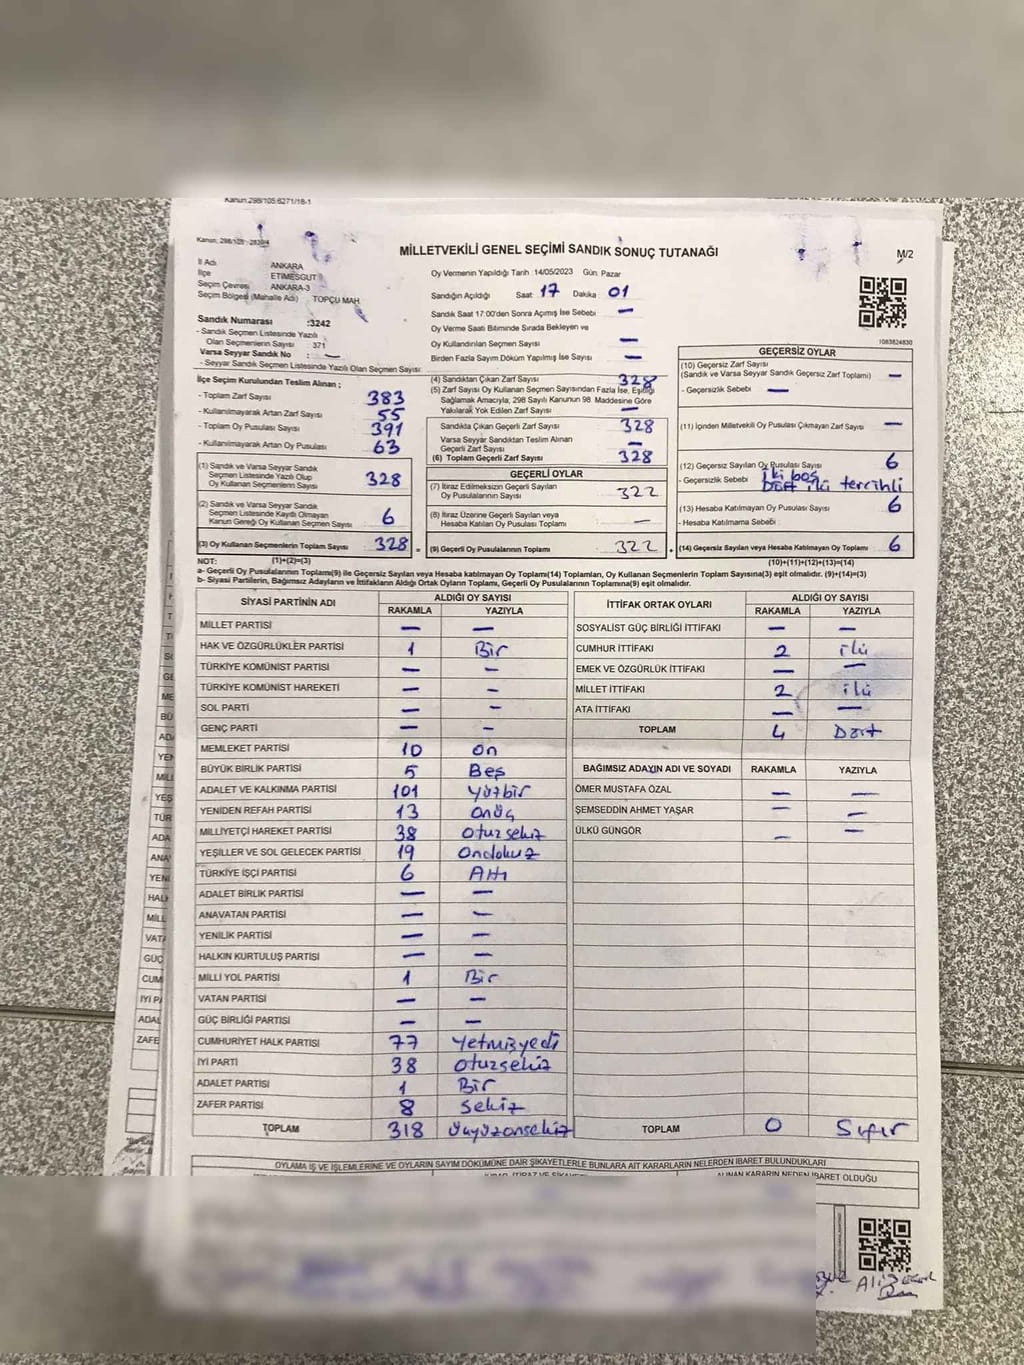 Kanun:298/105:6271/18-1
Kanun: 298/105 - 2839/4
MİLLETVEKİLİ GENEL SEÇİMİ SANDIK SONUÇ TUTANAĞI
M/2
İl Adı ANKARA
İlçe ETİMESGUT
Seçim Çevresi ANKARA-3
Seçim Bölgesi (Mahalle Adı) TOPÇU MAH.
Oy Vermenin Yapıldığı Tarih 14/05/2023 Gün: Pazar
Sandığın Açıldığı Saat: 17 Dakika 01
Sandık Saat 17:00'den Sonra Açılmış İse Sebebi —
Oy Verme Saati Bitiminde Sırada Bekleyen ve
Oy Kullandırılan Seçmen Sayısı —
Birden Fazla Sayım Döküm Yapılmış İse Sayısı —
1083824830
Sandık Numarası :3242
- Sandık Seçmen Listesinde Yazılı
Olan Seçmenlerin Sayısı 371
Varsa Seyyar Sandık No : —
- Seyyar Sandık Seçmen Listesinde Yazılı Olan Seçmen Sayısı:
İlçe Seçim Kurulundan Teslim Alınan ;
- Toplam Zarf Sayısı 383
- Kullanılmayarak Artan Zarf Sayısı 55
- Toplam Oy Pusulası Sayısı 391
- Kullanılmayarak Artan Oy Pusulası 63
(1) Sandık ve Varsa Seyyar Sandık
Seçmen Listesinde Yazılı Olup
Oy Kullanan Seçmenlerin Sayısı 328
(2) Sandık ve Varsa Seyyar Sandık
Seçmen Listesinde Kaydı Olmayan
Kanun Gereği Oy Kullanan Seçmen Sayısı 6
(3) Oy Kullanan Seçmenlerin Toplam Sayısı 328
(1)+(2)=(3)
(4) Sandıktan Çıkan Zarf Sayısı 328
(5) Zarf Sayısı Oy Kullanan Seçmen Sayısından Fazla İse, Eşitliği
Sağlamak Amacıyla, 298 Sayılı Kanunun 98. Maddesine Göre
Yakılarak Yok Edilen Zarf Sayısı —
Sandıkta Çıkan Geçerli Zarf Sayısı 328
Varsa Seyyar Sandıktan Teslim Alınan
Geçerli Zarf Sayısı —
(6) Toplam Geçerli Zarf Sayısı 328
GEÇERLİ OYLAR
(7) İtiraz Edilmeksizin Geçerli Sayılan
Oy Pusulalarının Sayısı 322
(8) İtiraz Üzerine Geçerli Sayılan veya
Hesaba Katılan Oy Pusulası Toplamı —
(9) Geçerli Oy Pusulalarının Toplamı 322
GEÇERSİZ OYLAR
(10) Geçersiz Zarf Sayısı
(Sandık ve Varsa Seyyar Sandık Geçersiz Zarf Toplamı) —
- Geçersizlik Sebebi : —
(11) İçinden Milletvekili Oy Pusulası Çıkmayan Zarf Sayısı —
(12) Geçersiz Sayılan Oy Pusulası Sayısı 6
- Geçersizlik Sebebi iki boş
Dört iki tercihli
(13) Hesaba Katılmayan Oy Pusulası Sayısı 6
- Hesaba Katılmama Sebebi :
(14) Geçersiz Sayılan veya Hesaba Katılmayan Oy Toplamı 6
(10)+(11)+(12)+(13)=(14)
NOT:
a- Geçerli Oy Pusulalarının Toplamı(9) ile Geçersiz Sayılan veya Hesaba katılmayan Oy Toplamı(14) Toplamları, Oy Kullanan Seçmenlerin Toplam Sayısına(3) eşit olmalıdır. (9)+(14)=(3)
b- Siyasi Partilerin, Bağımsız Adayların ve İttifakların Aldığı Ortak Oyların Toplamı, Geçerli Oy Pusulalarının Toplamına(9) eşit olmalıdır.
SİYASİ PARTİNİN ADI ALDIĞI OY SAYISI
RAKAMLA YAZIYLA
MİLLET PARTİSİ — —
HAK VE ÖZGÜRLÜKLER PARTİSİ 1 Bir
TÜRKİYE KOMÜNİST PARTİSİ — —
TÜRKİYE KOMÜNİST HAREKETİ — —
SOL PARTİ — —
GENÇ PARTİ — —
MEMLEKET PARTİSİ 10 on
BÜYÜK BİRLİK PARTİSİ 5 Beş
ADALET VE KALKINMA PARTİSİ 101 yüzbir
YENİDEN REFAH PARTİSİ 13 onüç
MİLLİYETÇİ HAREKET PARTİSİ 38 otuzsekiz
YEŞİLLER VE SOL GELECEK PARTİSİ 19 ondokuz
TÜRKİYE İŞÇİ PARTİSİ 6 Altı
ADALET BİRLİK PARTİSİ — —
ANAVATAN PARTİSİ — —
YENİLİK PARTİSİ — —
HALKIN KURTULUŞ PARTİSİ — —
MİLLİ YOL PARTİSİ 1 Bir
VATAN PARTİSİ — —
GÜÇ BİRLİĞİ PARTİSİ — —
CUMHURİYET HALK PARTİSİ 77 yetmişyedi
İYİ PARTİ 38 otuzsekiz
ADALET PARTİSİ 1 Bir
ZAFER PARTİSİ 8 sekiz
TOPLAM 318 üçyüzonsekiz
İTTİFAK ORTAK OYLARI ALDIĞI OY SAYISI
RAKAMLA YAZIYLA
SOSYALİST GÜÇ BİRLİĞİ İTTİFAKI — —
CUMHUR İTTİFAKI 2 iki
EMEK VE ÖZGÜRLÜK İTTİFAKI — —
MİLLET İTTİFAKI 2 iki
ATA İTTİFAKI — —
TOPLAM 4 Dört
BAĞIMSIZ ADAYIN ADI VE SOYADI RAKAMLA YAZIYLA
ÖMER MUSTAFA ÖZAL — —
ŞEMSEDDİN AHMET YAŞAR — —
ÜLKÜ GÜNGÖR — —
TOPLAM 0 Sıfır
OYLAMA İŞ VE İŞLEMLERİNE VE OYLARIN SAYIM DÖKÜMÜNE DAİR ŞİKAYETLERLE BUNLARA AİT KARARLARIN NELERDEN İBARET BULUNDUKLARI
ALINAN KARARIN NEDEN İBARET OLDUĞU